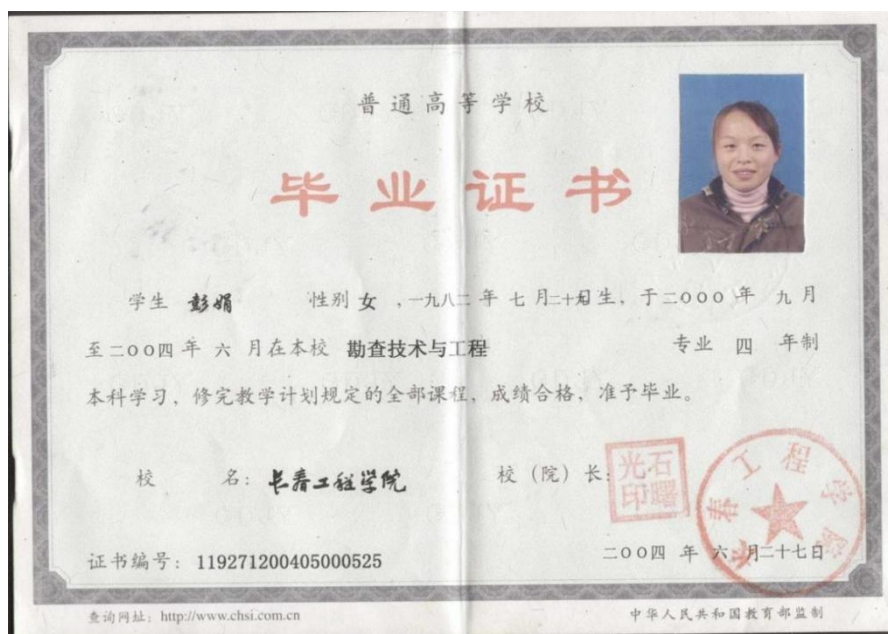 普通高等学校
毕业证书
学生 彭娟 性别 女 ,一九八二 年 七 月 二十 日生，于二○○○ 年 九 月
至二○○四年 六 月在本校 勘查技术与工程 专业 四 年制
本科学习，修完教学计划规定的全部课程，成绩合格，准予毕业。
校 名：长春工程学院 校（院）长：
石曙光印
长春工程学院
证书编号：119271200405000525 二○○四 年 六 月二十七日
查询网址：http://www.chsi.com.cn 中华人民共和国教育部监制